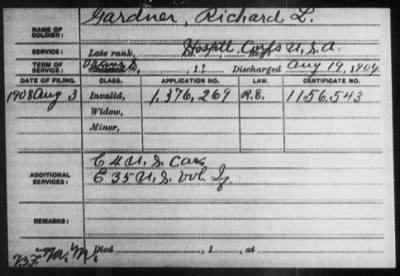 NAME OF SOLDIER: Gardner, Richard L.
SERVICE: Late rank, Hospitl Corps U.S.A.
TERM OF SERVICE: Discharged Aug 19, 1904
DATE OF FILING. CLASS. APPLICATION NO. LAW. CERTIFICATE NO.
1908 Aug 3 Invalid, 1,376,269 R.E. 1156,543
Widow,
Minor,
ADDITIONAL SERVICES: C 4 U.S. Cav
E 35 U.S. Vol. If.
REMARKS:
Died , 1 , at